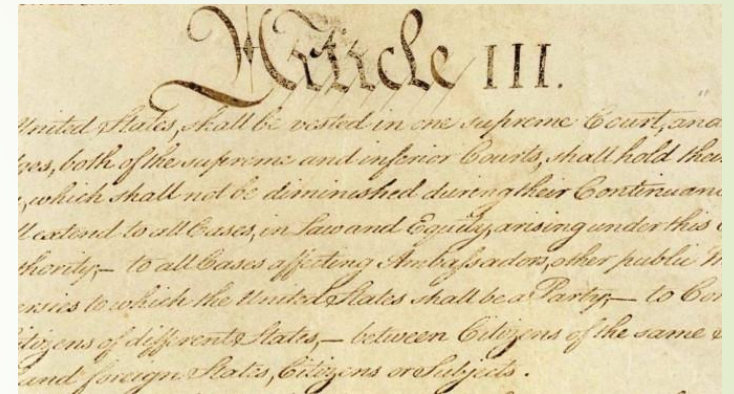 Article III.
United States, shall be vested in one supreme Court, and
ges, both of the supreme and inferior Courts, shall hold their
, which shall not be diminished during their Continuanc
ll extend to all Cases, in Law and Equity, arising under this
thority;— to all Cases affecting Ambassadors, other public M
ersies to which the United States shall be a Party;— to Con
itizens of different States,— between Citizens of the same
and foreign States, Citizens or Subjects.